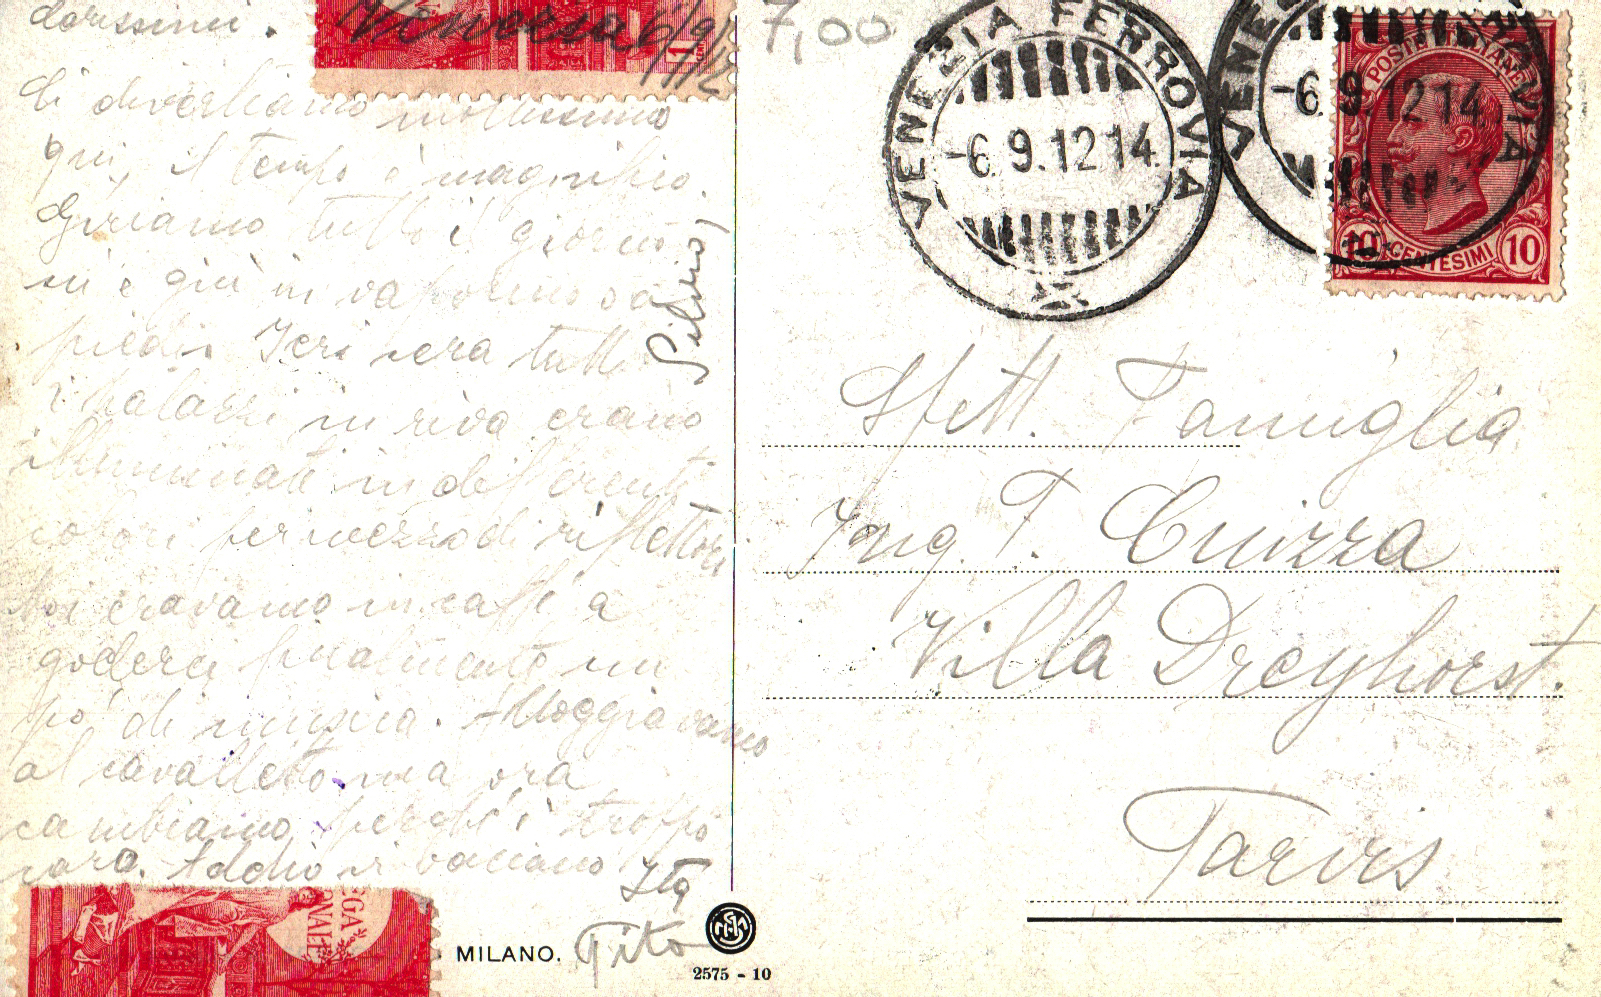 dorissimi.
Venezia 6/9/12
7,00
Ci divertiamo moltissimo
qui, il tempo è magnifico.
Giriamo tutto il giorno
su e giù in vaporino o a
piedi. Ieri sera tutti
i palazzi in riva erano
illuminati in differenti
colori per mezzo di riflettori
Noi eravamo in caffè a
goderci finalmente un
po' di musica. Alloggiavamo
al cavalletto ma ora
cambiamo perchè è troppo
caro. Addio vi baciano
Ita
Tito
Silvio,
EGA
MILANO.
2575 - 10
VENEZIA FERROVIA
-6.9.12 14
VENEZIA FERROVIA
-6.9.12 14
POSTE ITALIANE
10 CENTESIMI 10
Spett. Famiglia
Ing. T. Cuizza
Villa Dreyhorst.
Tarvis